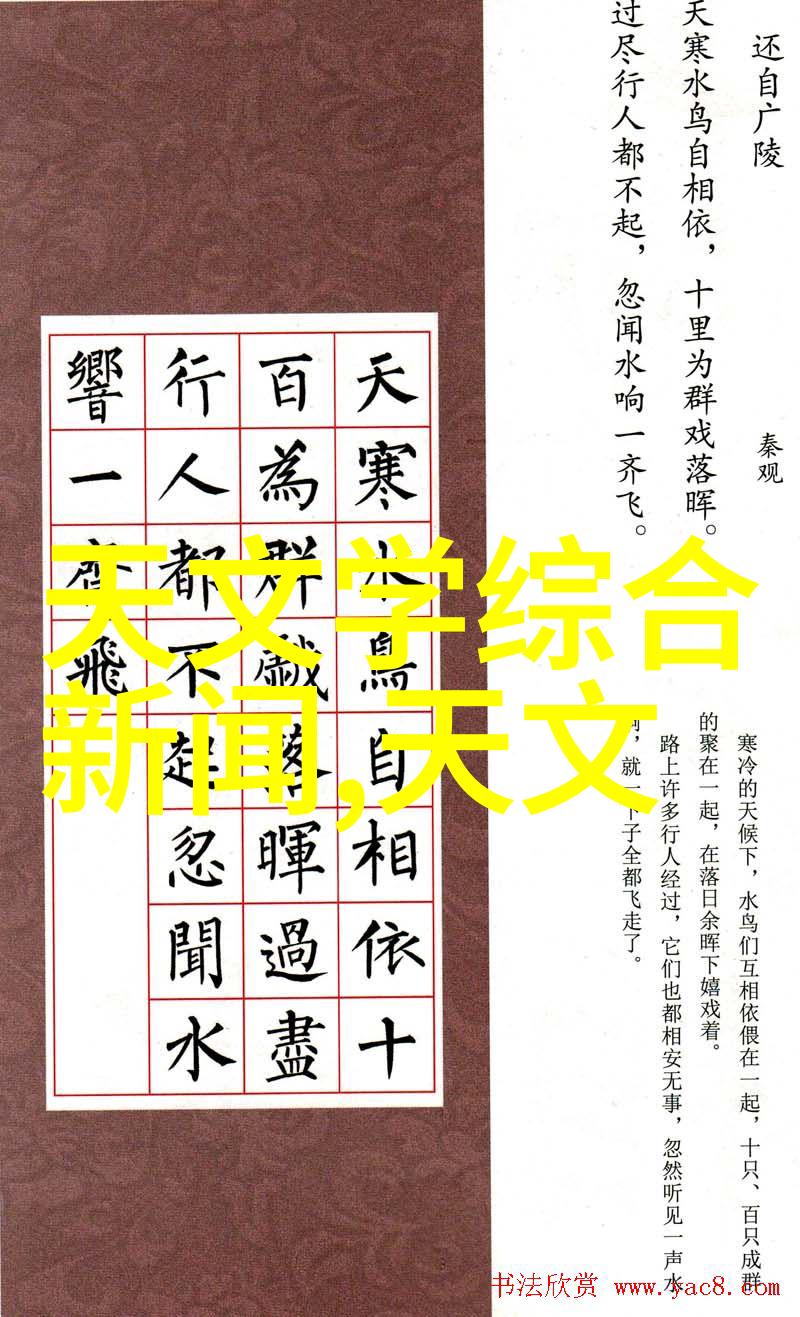 还自广陵
秦观
天寒水鸟自相依，十里为群戏落晖。
过尽行人都不起，忽闻水响一齐飞。
寒冷的天候下，水鸟们互相依偎在一起，十只、百只成群
的聚在一起，在落日余晖下嬉戏着。
路上许多行人经过，它们也都相安无事，忽然听见一声水
响，就一下子全都飞走了。
天寒水鳥自相依十
百為群戲落暉過盡
行人都不起忽聞水
響一齊飛
天文学综合
新闻,天文
书法欣赏 www.yac8.com